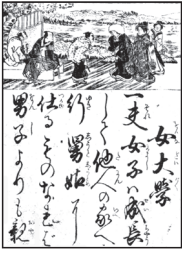 女大学
一夫女子ハ成長
して他人の家へ
行舅姑に
仕るものなれは
男子よりも親